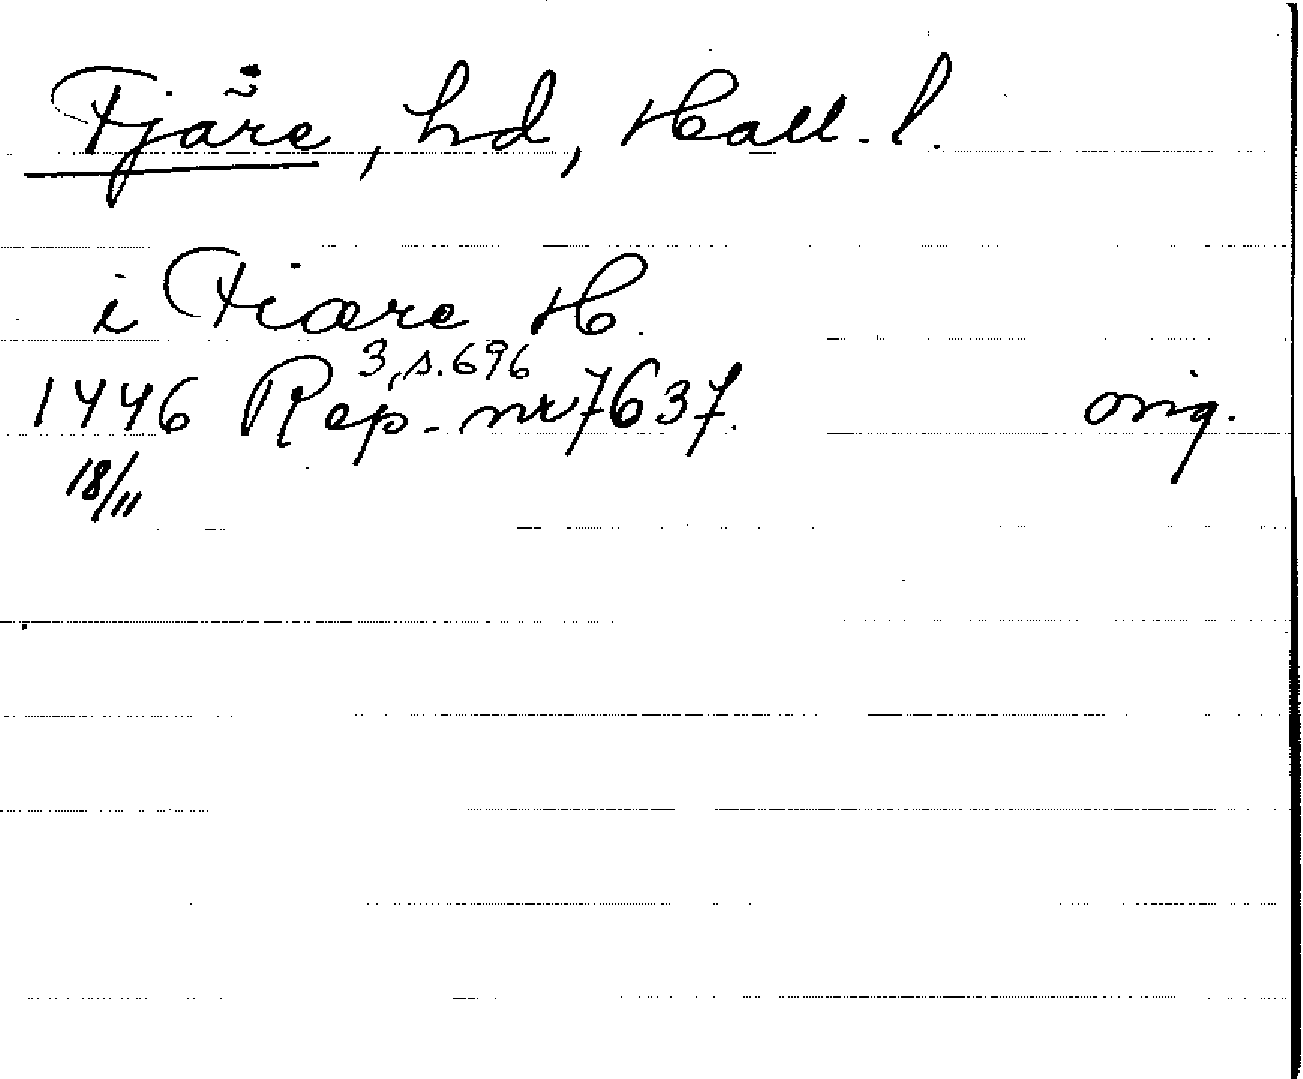 Fjäre, hd, Hall. l.
i Fiære H.
3, s. 696
1446 Rep. nr 7637. orig.
18/11